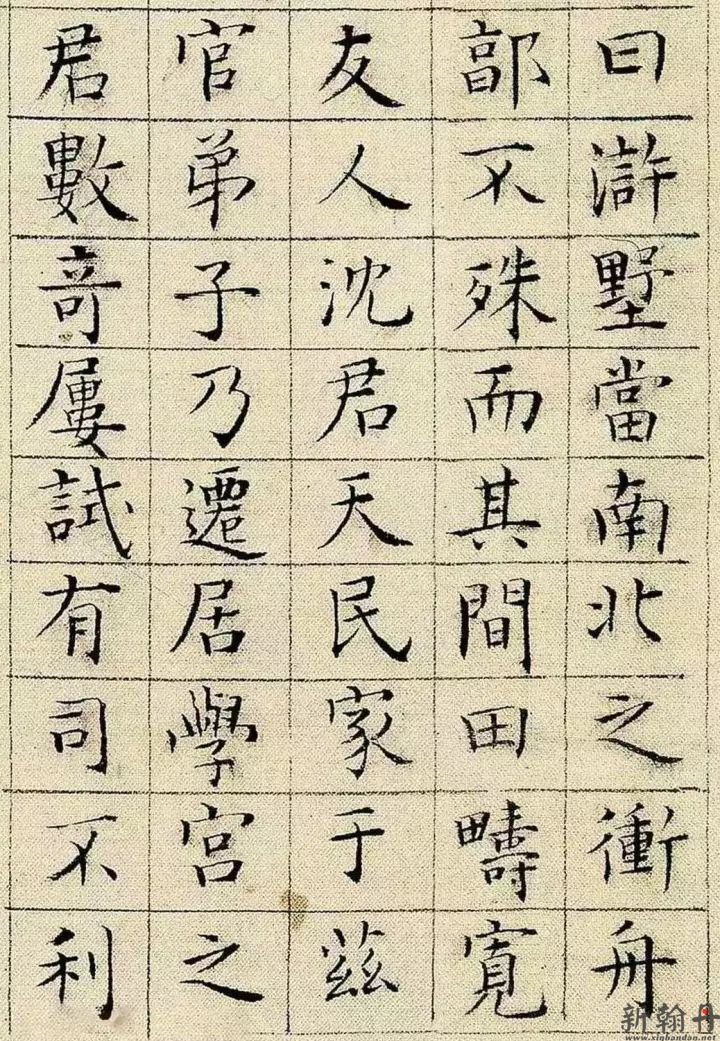 曰滸墅當南北之衝舟
郭不殊而其間田疇寬
友人沈君天民家于茲
官弟子乃遷居學宮之
君數奇屢試有司不利
新翰丹
www.xinhandan.net